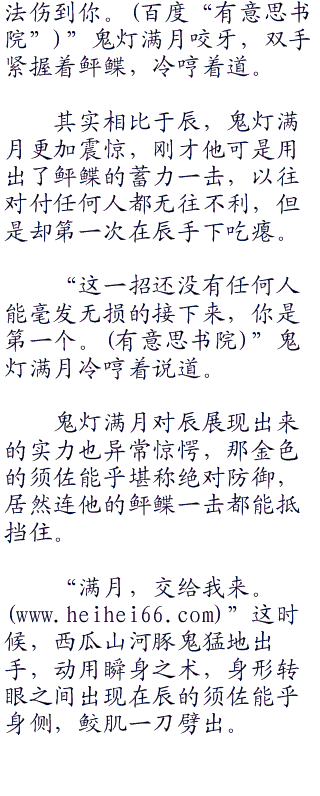 法伤到你。(百度“有意思书
院”)”鬼灯满月咬牙，双手
紧握着鲆鲽，冷哼着道。
其实相比于辰，鬼灯满
月更加震惊，刚才他可是用
出了鲆鲽的蓄力一击，以往
对付任何人都无往不利，但
是却第一次在辰手下吃瘪。
“这一招还没有任何人
能毫发无损的接下来，你是
第一个。(有意思书院)”鬼
灯满月冷哼着说道。
鬼灯满月对辰展现出来
的实力也异常惊愕，那金色
的须佐能乎堪称绝对防御，
居然连他的鲆鲽一击都能抵
挡住。
“满月，交给我来。
(www.heihei66.com)”这时
候，西瓜山河豚鬼猛地出
手，动用瞬身之术，身形转
眼之间出现在辰的须佐能乎
身侧，鲛肌一刀劈出。